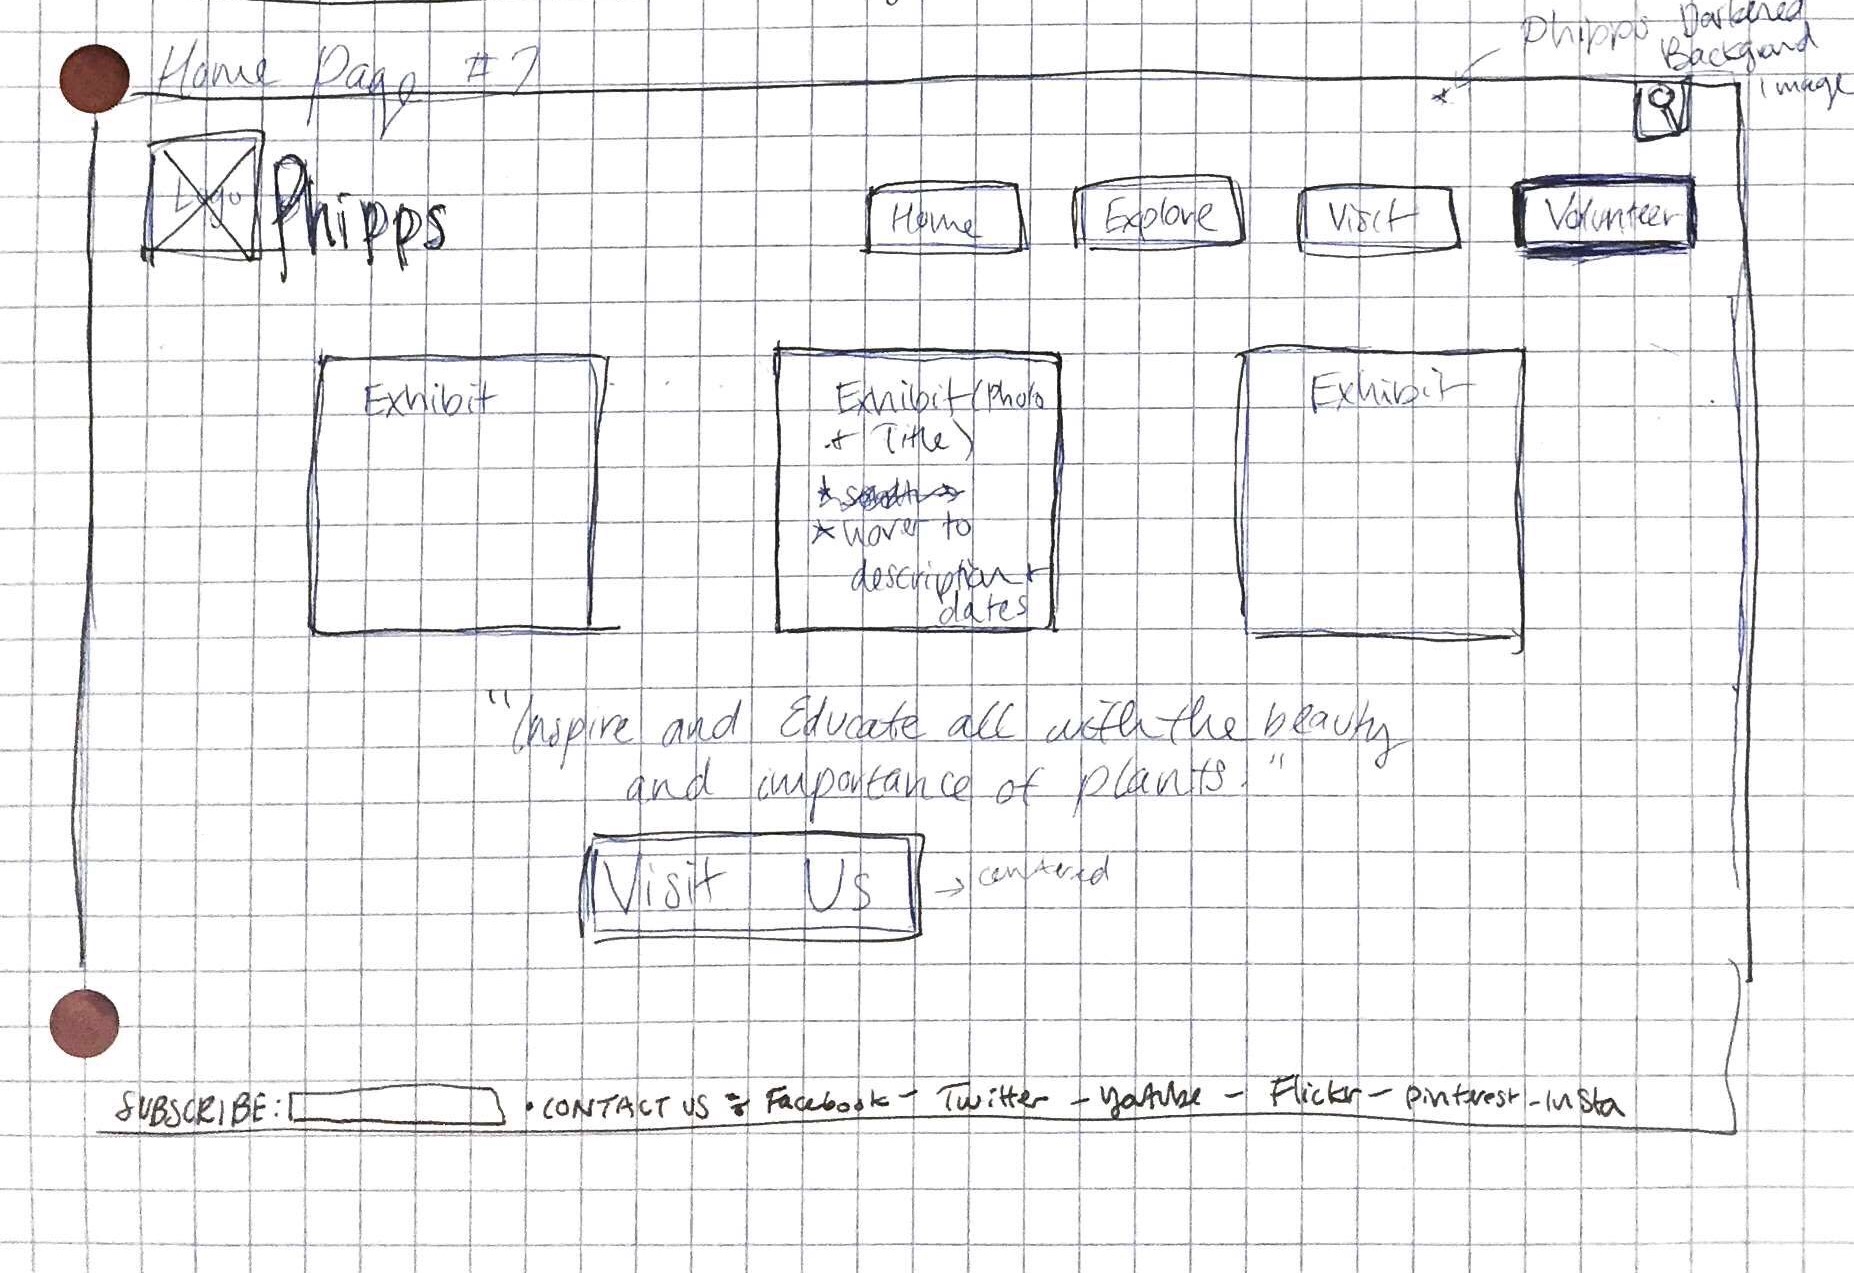 Home Page #7
Phipps Darkened
Backgrond
Image
Logo
Phipps
Home
Explore
Visit
Volunteer
Exhibit
Exhibit (Photo
+ Title)
* hover to
description +
dates
Exhibit
"Inspire and Educate all with the beauty
and importance of plants."
Visit Us
→ centered
SUBSCRIBE:
• CONTACT US Facebook - Twitter - Youtube - Flickr - pinterest - Insta